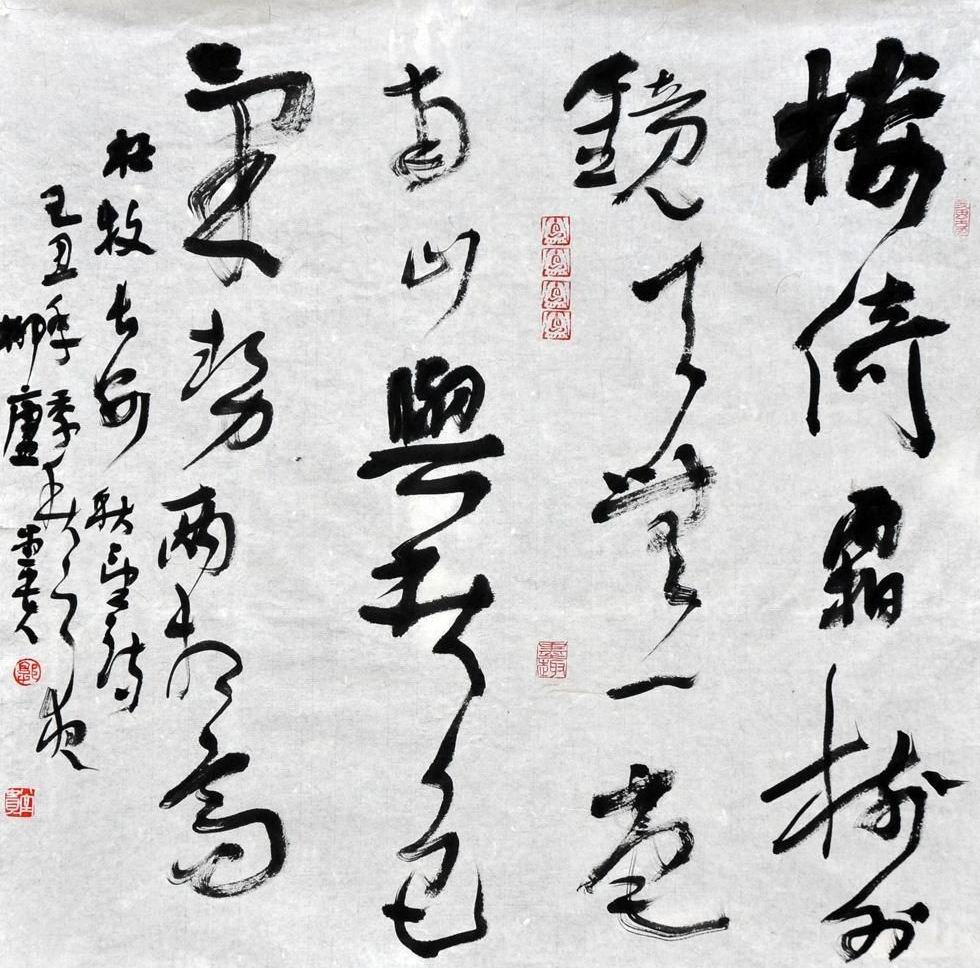 樓倚霜樹外
鏡天無一毫
南山與秋色
氣勢兩相高
杜牧長安秋望詩
己丑年季春之夜
柳廬